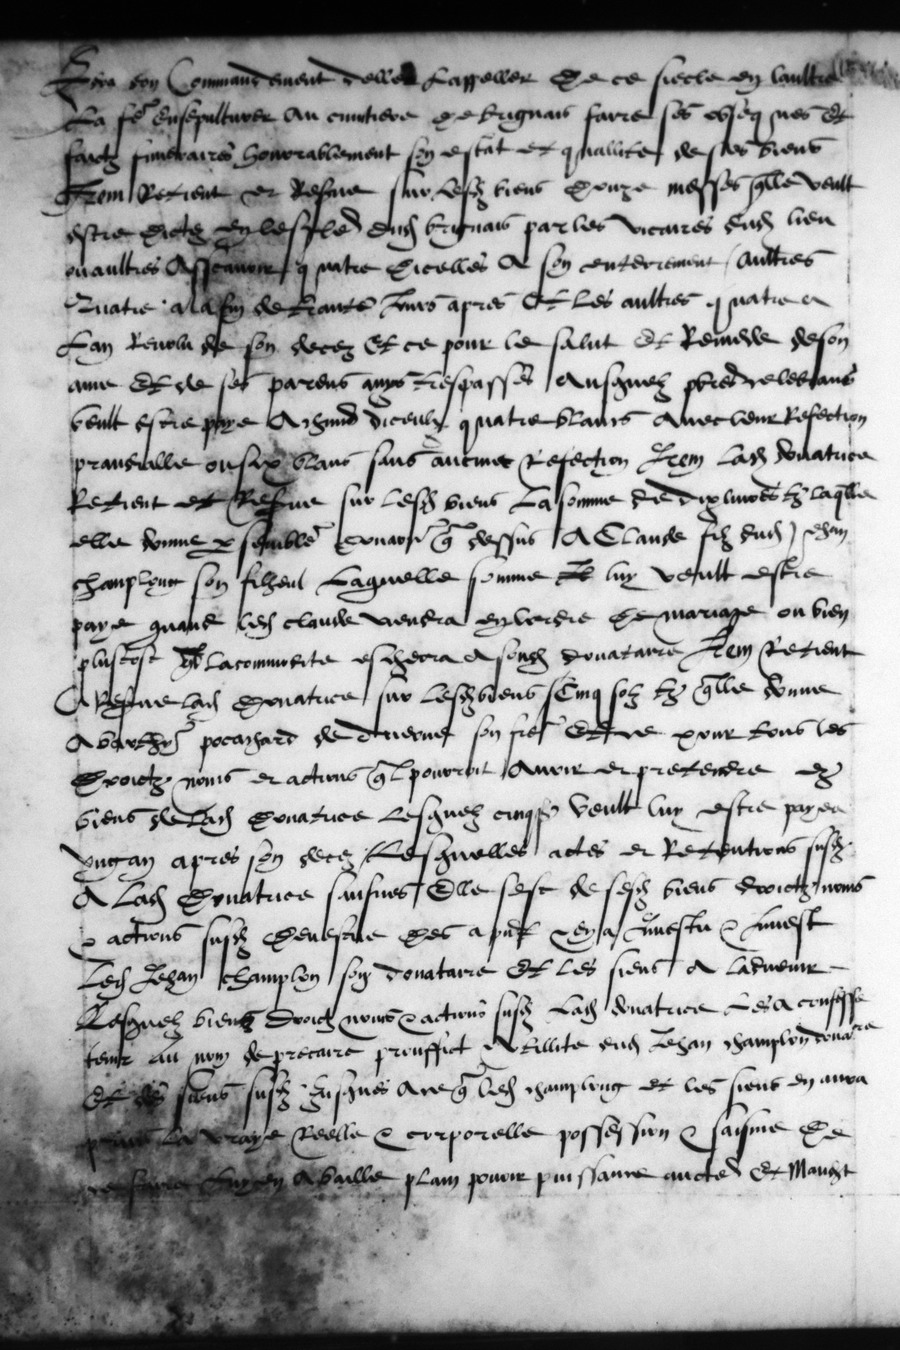 son commandement delle Lappeller de ce siecle en laultre
La fe ensepulturer au cimitiere de brignais faire ses obseques et
faictz funeraires honorablement son estat et quallite de ses biens
Item Retient et Reserve sur lesd biens douze messes qlle veult
estre dictes en lesglise dud brignais par les vicaires dud lieu
ou aultres Assçavoir quatre dicelles A son enterrement Aultres
Quatre a la fin de trante Jours apres Et les aultres quatre a
Lan Revolu de son decez Et ce pour le salut Et Remede de son
ame Et de ses parens amys trespasses Ausquelz pbres celebrans
veult estre paye A chund diceulx quatre blancs Avec leur Refection
prandialle ou six blans sans aucune Refection Item Lad donatrice
Retient et Reserve sur lesd biens La somme de dix livres tz laqlle
elle donne p semble dessus A Claude filz dud Jehan
champlong son filheul Laquelle somme luy veult estre
paye quand led claude viendra en lordre de mariage ou bien
plustost la commodite escherra a sond donataire Item Retient
Reserve lad donatrice sur lesd biens Cinq solz tz qlle donne
A pocachard de son fre Et ce pour tous les
Droictz noms et actions ql pourroit Avoir et pretendre ez
biens de Lad donatrice Lesquelz cinq s veult luy estre payer
ung an apres son decez Lesquelles actes et Retentions susd
A Lad donatrice saulves Elle sest de sesd biens droictz noms
& actions susd devestue des a pnt & en a Investu & Invest
Led Jehan champlon son donataire Et les siens A Ladvenir
Lesquelz biens droictz noms & actions susd Lad donatrice Les a confesse
tenir au nom de precaire prouffict & utillite dud Jehan champlon donatre
Et des siens susd Jusques Ace q led champlong et les siens en aura
prins La vraye Reelle & corporelle possession & saisine De
ce faire Luy en A baille plain povoir puissance aucte Et Mandt